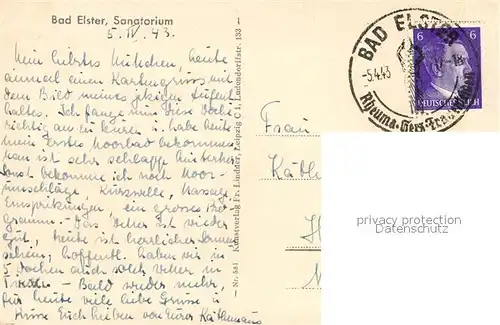 Bad Elster, Sanatorium
5. IV. 43.
Mein liebstes heute
einmal einen Kartengruss mit
dem Bild meines jetzigen Aufent
haltes. Ich fange nun diese Woche
richtig an zu kuren u. habe heute
mein erstes Moorbad bekommen
man ist sehr schlapp hinterher
sonst bekomme ich noch Moor-
umschläge, Kurzwelle, Massage
Einspritzungen, ein grosses Pro
gramm. - Das Wetter ist wieder
gut, heute ist herrlicher Sonnen
schein, hoffentl. haben wir in
5 Wochen auch solch Wetter in
- Bald wieder mehr,
für heute viele liebe Grüsse u.
Küsse Euch Lieben von Eurer
Nr. 581 Kunstverlag Fr. Lindner, Leipzig C 1, Ludendorffstr. 133
BAD ELSTER
-5.4.43 -18
Rheuma-Herz-Frauenleiden
6 6
DEUTSCHES REICH
Frau
Käthe
H
privacy protection
Datenschutz